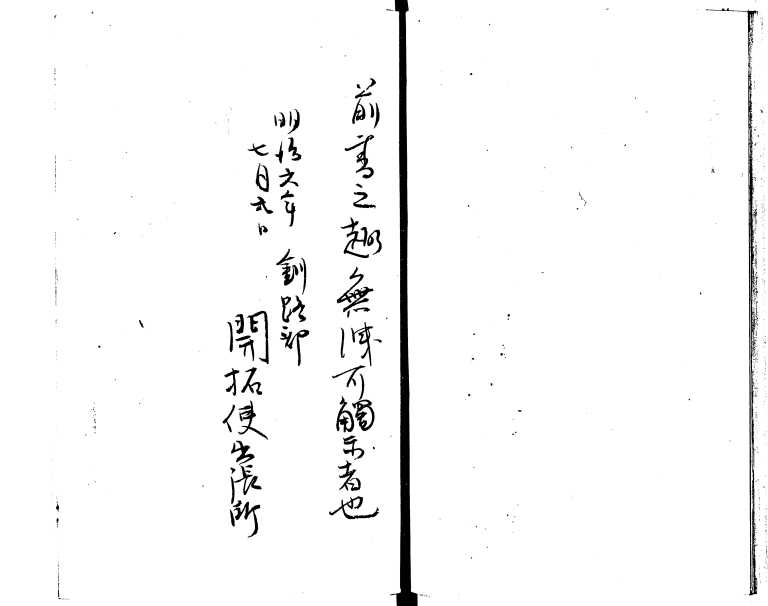 前書之趣無洩可觸示者也
明治六年
七月弐日
釧路郡
開拓使出張所